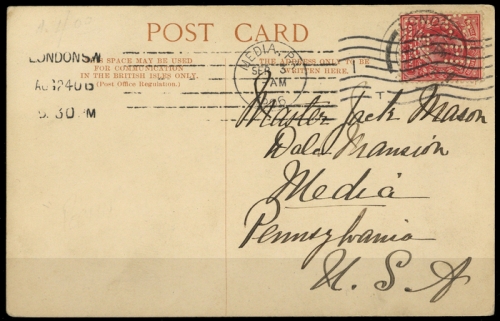 POST CARD
THIS SPACE MAY BE USED
FOR COMMUNICATION
IN THE BRITISH ISLES ONLY.
(Post Office Regulation.)
THE ADDRESS ONLY TO BE
WRITTEN HERE.
LONDON S.W
AU 24 06
9.30 PM
MEDIA, PA.
SEP 3
7 AM
Master Jack Mason
Dale Mansion
Media
Pennsylvania
U. S. A